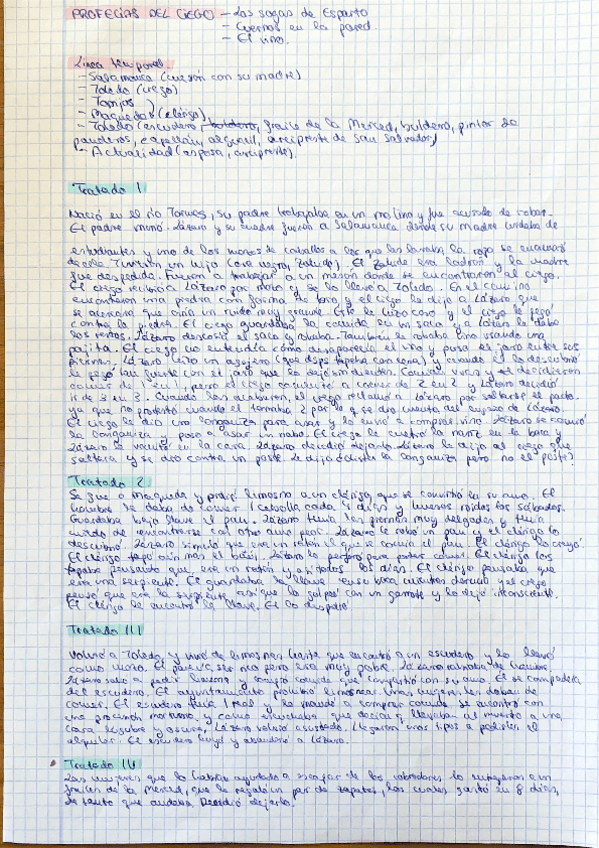 PROFECIAS DEL CIEGO - Las sogas de Esparto
- Cuernos en la pared.
- El vino.
Línea temporal
- Salamanca (mesón con su madre)
- Toledo (ciego)
- Torrijos )
- Maqueda (clérigo)
- Toledo (escudero, buldero, fraile de la Merced, buldero, pintor de
panderos, capellán, alguacil, arcipreste de San Salvador)
- Actualidad (esposa, arcipreste).
Tratado 1
Nació en el río Tormes, su padre trabajaba en un molino y fue acusado de robar.
El padre murió. Lázaro y su madre fueron a Salamanca donde su madre cuidaba de
estudiantes y uno de los mozos de caballos a los que les lavaba la ropa se enamoró
de ella. Tuvieron un hijo (era negro, Zalude). El Zalude era ladrón y la madre
fue despedida. Fueron a trabajar a un mesón donde se encontraron al ciego.
El ciego recibió a Lázaro por mozo y se lo llevó a Toledo. En el camino
encontraron una piedra con forma de toro, y el ciego le dijo a Lázaro que
se acercara que oiría un ruido muy grande. Este le hizo caso y el ciego le pegó
contra la piedra. El ciego guardaba la comida en un saco y a Lázaro le daba
los restos. Lázaro descosió el saco y robaba. También le robaba vino usando una
pajita. El ciego no entendía cómo desaparecía el vino y puso el jarro entre sus
piernas. Lázaro hizo un agujero (que dsps tapaba con cera) y cuando el lo descubrió
le pegó tan fuerte con el jarro que lo dejó sin dientes. Comían uvas y decidieron
comer de 1 en 1, pero el ciego empezó a comer de 2 en 2 y Lázaro decidió
ir de 3 en 3. Cuando las acabaron, el ciego reclamó a Lázaro por saltarse el pacto
ya que no protestó cuando el tomaba 2 por lo q se dio cuenta del engaño de Lázaro.
El ciego le dio una longaniza para asar y lo envió a comprar vino. Lázaro se comió
la longaniza y puso a asar un nabo. El ciego le metió la nariz en la boca y
Lázaro le vomitó en la cara. Lázaro decidió dejarlo. Lázaro le dijo al ciego que
saltara y se dio contra un poste. Le dijo ¿olió la longaniza pero no el poste?
Tratado 2
Se fue a Maqueda y pidió limosna a un clérigo, que se convirtió en su amo. El
hombre le daba de comer 1 cebolla cada 4 días y huesos roídos los sábados.
Guardaba bajo llave el pan. Lázaro tenía las piernas muy delgadas y tenía
miedo de encontrarse con otro amo peor. Lázaro le robó un pan y el clérigo lo
descubrió. Lázaro simuló que era un ratón el que se comía el pan. El clérigo lo creyó.
El clérigo tapó aún más el baúl. Lázaro lo perforó para poder comer. El clérigo los
tapaba pensando que era un ratón y así todos los días. El clérigo pensaba que
era una serpiente. El guardaba la llave en su boca mientras dormía y el ciego
pensó que era la serpiente así que lo golpeó con un garrote y lo dejó inconsciente.
El clérigo le encontró la llave. Él lo despidió
Tratado III
Volvió a Toledo, y vivió de limosnas hasta que encontró a un escudero y lo llevó
como mozo. El parecía ser rico pero era muy pobre. Lázaro rabiaba de hambre.
Lázaro salió a pedir limosna y consiguió comida que compartió con su amo. El se compadecía
del escudero. El ayuntamiento prohibió limosnear. Unas mujeres les daban de
comer. El escudero tenía 1 real y lo mandó a comprar comida. Se encontró con
una procesión mortuoria, y como escuchaba que decían q llevaban al muerto a una
casa lúgubre y oscura, Lázaro volvió asustado. Llegaron unos tipos a pedirles el
alquiler. El escudero huyó y abandonó a Lázaro.
Tratado IV
Las mujeres que lo habían ayudado a escapar de los cobradores lo entregaron a un
fraile de la Merced, que le regaló un par de zapatos, los cuales gastó en 8 días,
de tanto que andaba. Decidió dejarlo.